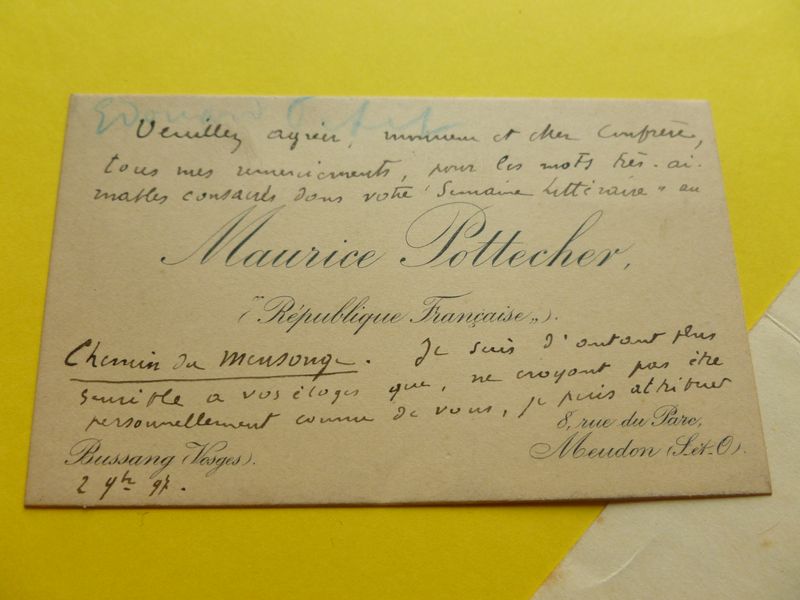 Edouard Petit
Veuillez agréer, monsieur et cher Confrère,
tous mes remerciements, pour les mots très-ai-
mables consacrés dans votre "Semaine Littéraire" au
Maurice Pottecher,
("République Française").
Chemin du Mensonge. Je suis d'autant plus
sensible à vos éloges que, ne croyant pas être
personnellement connu de vous, je puis attribuer
8, rue du Parc,
Bussang (Vosges).
Meudon (S.et-O).
2 9bre 97.